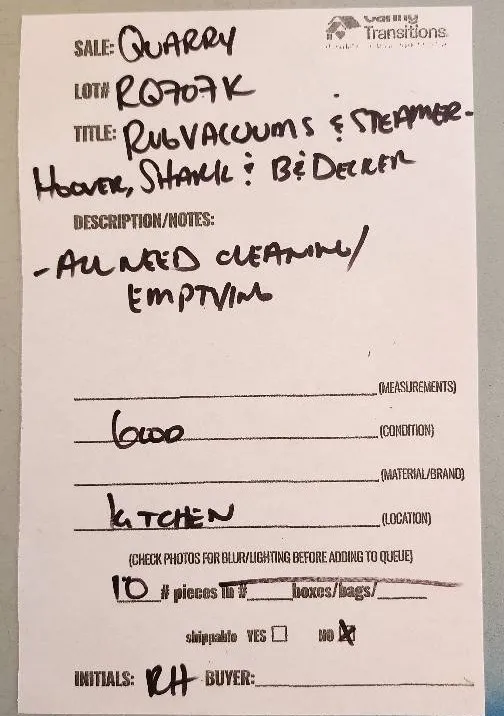 Caring
Transitions
SALE: QUARRY
LOT# RQ707K
TITLE: RUG VACUUMS & STEAMER-
HOOVER, SHARK & B&DECKER
DESCRIPTION/NOTES:
-ALL NEED CLEANING/
EMPTYING
(MEASUREMENTS)
GOOD (CONDITION)
(MATERIAL/BRAND)
KITCHEN (LOCATION)
(CHECK PHOTOS FOR BLUR/LIGHTING BEFORE ADDING TO QUEUE)
10 # pieces in # boxes/bags/
shippable YES NO
INITIALS: RH BUYER: